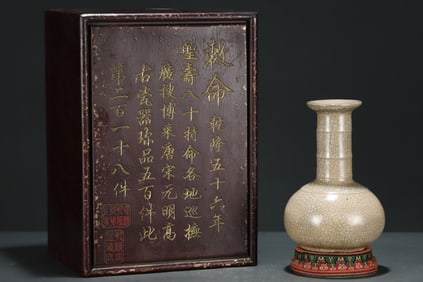 敕命 乾隆五十六年
聖壽八十特命各地巡撫
廣搜博采唐宋元明高
古瓷器珍品五百件此
第二百一十八件